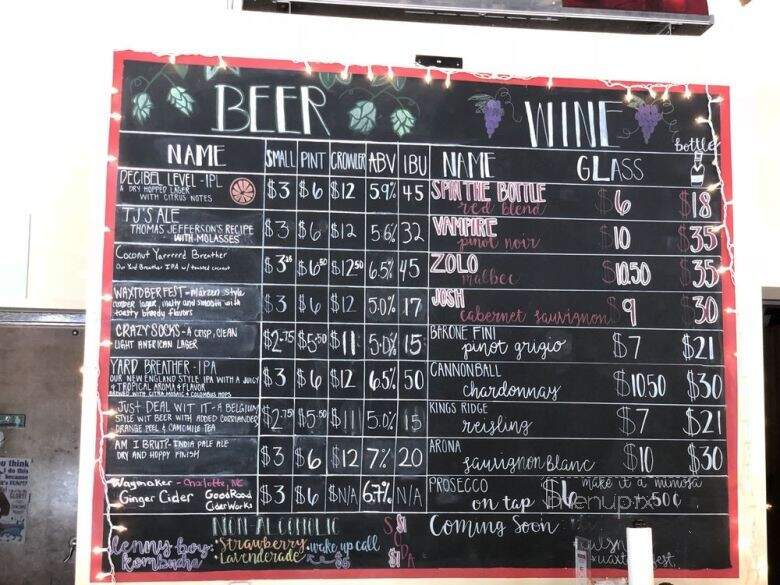 BEER
NAME SMALL PINT CROWLER ABV IBU
DECIBEL LEVEL - IPL
A DRY HOPPED LAGER
WITH CITRUS NOTES
$3 $6 $12 5.9% 45
TJ'S ALE
THOMAS JEFFERSON'S RECIPE
WITH MOLASSES
$3 $6 $12 5.6% 32
Coconut Yarrrrrd Breather
Our Yard Breather IPA w/ toasted coconut
$3.25 $6.50 $12.50 6.5% 45
WAXTOBERFEST - Märzen style
copper lager, malty and smooth with
toasty bready flavors
$3 $6 $12 5.0% 17
CRAZY SOCKS - A CRISP, CLEAN
LIGHT AMERICAN LAGER
$2.75 $5.50 $11 5.0% 15
YARD BREATHER - IPA
OUR NEW ENGLAND STYLE IPA WITH A JUICY
& TROPICAL AROMA & FLAVOR
BREWED WITH CITRA MOSAIC & COLUMBUS HOPS
$3 $6 $12 6.5% 50
JUST DEAL WIT IT - A BELGIUM
STYLE WIT BEER WITH ADDED CORRIANDER
ORANGE PEEL & CAMOMILE TEA
$2.75 $5.50 $11 5.0% 15
AM I BRUT? - INDIA PALE ALE
DRY AND HOPPY FINISH
$3 $6 $12 7% 20
Waymaker - Charlotte, NC
Ginger Cider GoodRoad
CiderWorks
$3 $6 $N/A 6.7% N/A
NON-ALCOHOLIC
Lenny boy
Kombucha:
• Strawberry wake up call
• Lavenderade
$5
SODA
$1
WINE
NAME GLASS bottle
SPIN THE BOTTLE
red blend
$6 $18
VAMPIRE
pinot noir
$10 $35
ZOLO
malbec
$10.50 $35
JOSH
cabernet sauvignon
$9 $30
BARONE FINI
pinot grigio
$7 $21
CANNONBALL
chardonnay
$10.50 $30
KINGS RIDGE
reisling
$7 $21
ARONA
sauvignon blanc
$10 $30
PROSECCO
on tap
$6 make it a mimosa
+50¢
Coming Soon
menupix
u think
I do this
because